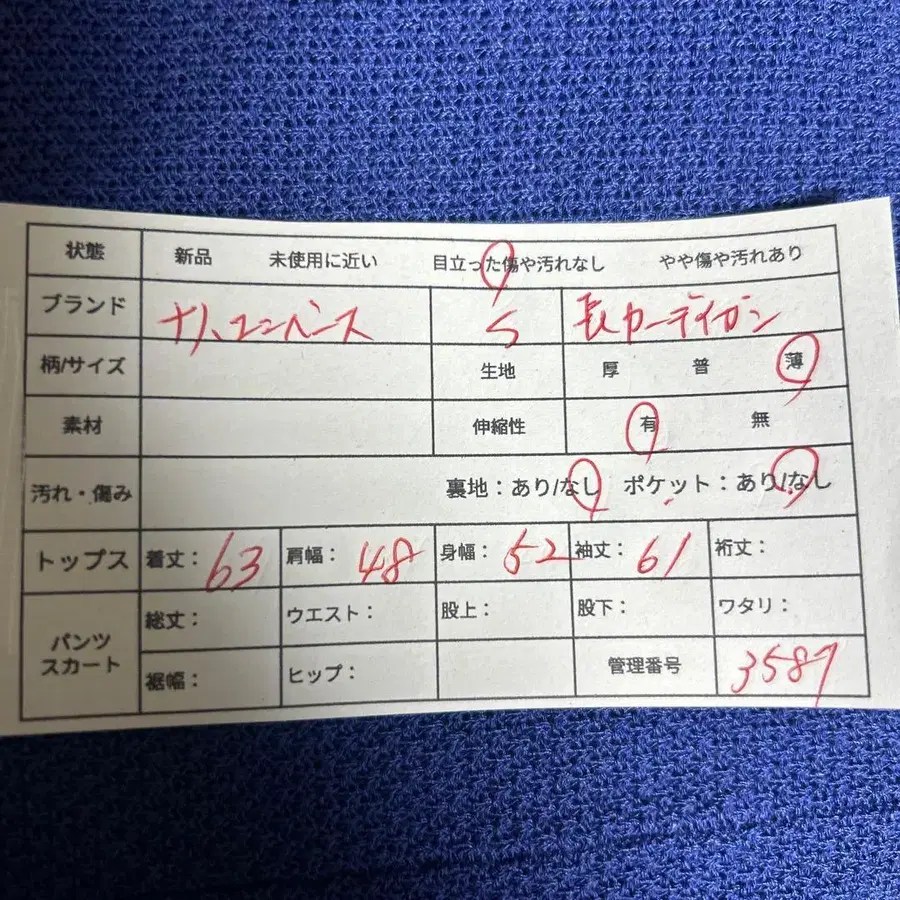 状態 新品 未使用に近い 目立った傷や汚れなし やや傷や汚れあり
ブランド ナノ.ユニバース S 長カーディガン
柄/サイズ 生地 厚 普 薄
素材 伸縮性 有 無
汚れ・傷み 裏地：あり/なし ポケット：あり/なし
トップス 着丈：63 肩幅：48 身幅：52 袖丈：61 裄丈：
パンツ スカート 総丈： ウエスト： 股上： 股下： ワタリ：
裾幅： ヒップ： 管理番号 3587